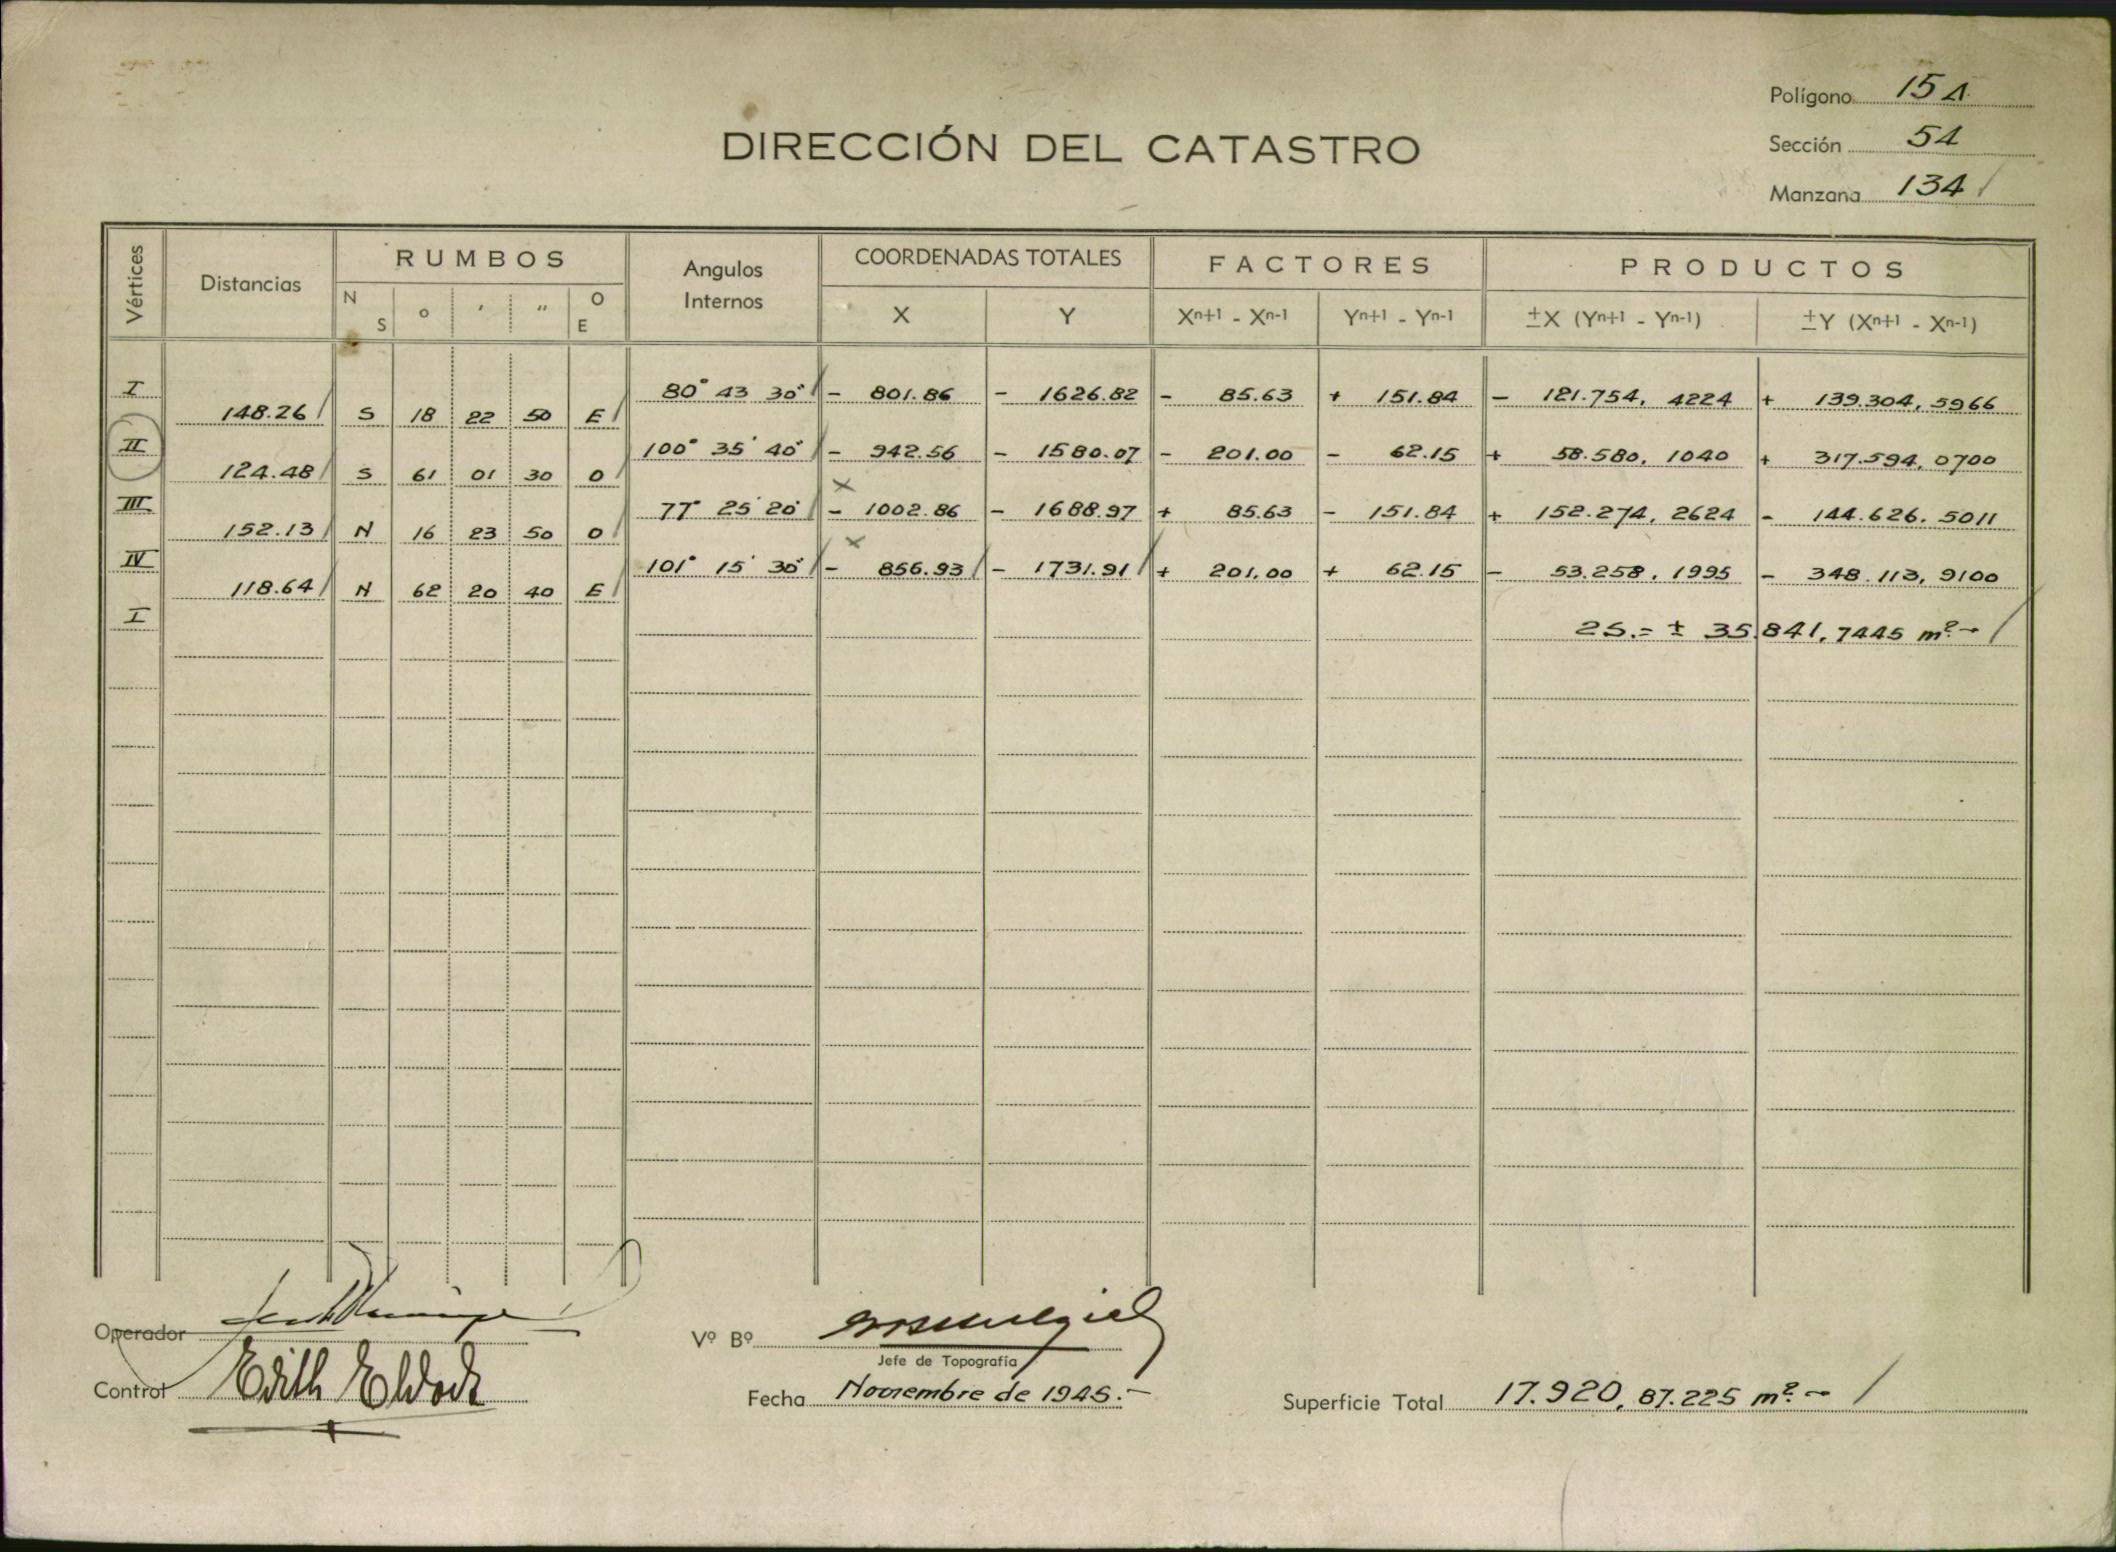 Polígono 15 A
DIRECCIÓN DEL CATASTRO
Sección 54
Manzana 134 /
Vértices Distancias RUMBOS Angulos Internos COORDENADAS TOTALES FACTORES PRODUCTOS
N S ° ' " O E X Y Xn+1 - Xn-1 Yn+1 - Yn-1 ±X (Yn+1 - Yn-1) ±Y (Xn+1 - Xn-1)
I 80° 43 30" - 801.86 - 1626.82 - 85.63 + 151.84 - 121.754, 4224 + 139.304, 5966
148.26 S 18 22 50 E
II 100° 35' 40" - 942.56 - 1580.07 - 201.00 - 62.15 + 58.580, 1040 + 317.594, 0700
124.48 S 61 01 30 O
III 77° 25' 20" - 1002.86 - 1688.97 + 85.63 - 151.84 + 152.274, 2624 - 144.626, 5011
152.13 N 16 23 50 O
IV 101° 15' 30" - 856.93 - 1731.91 + 201.00 + 62.15 - 53.258, 1995 - 348.113, 9100
118.64 N 62 20 40 E
I 2S.= ± 35.841, 7445 m2.-
Operador
Vº Bº
Jefe de Topografía
Control Edith
Fecha Noviembre de 1945.-
Superficie Total 17.920, 87.225 m2.-